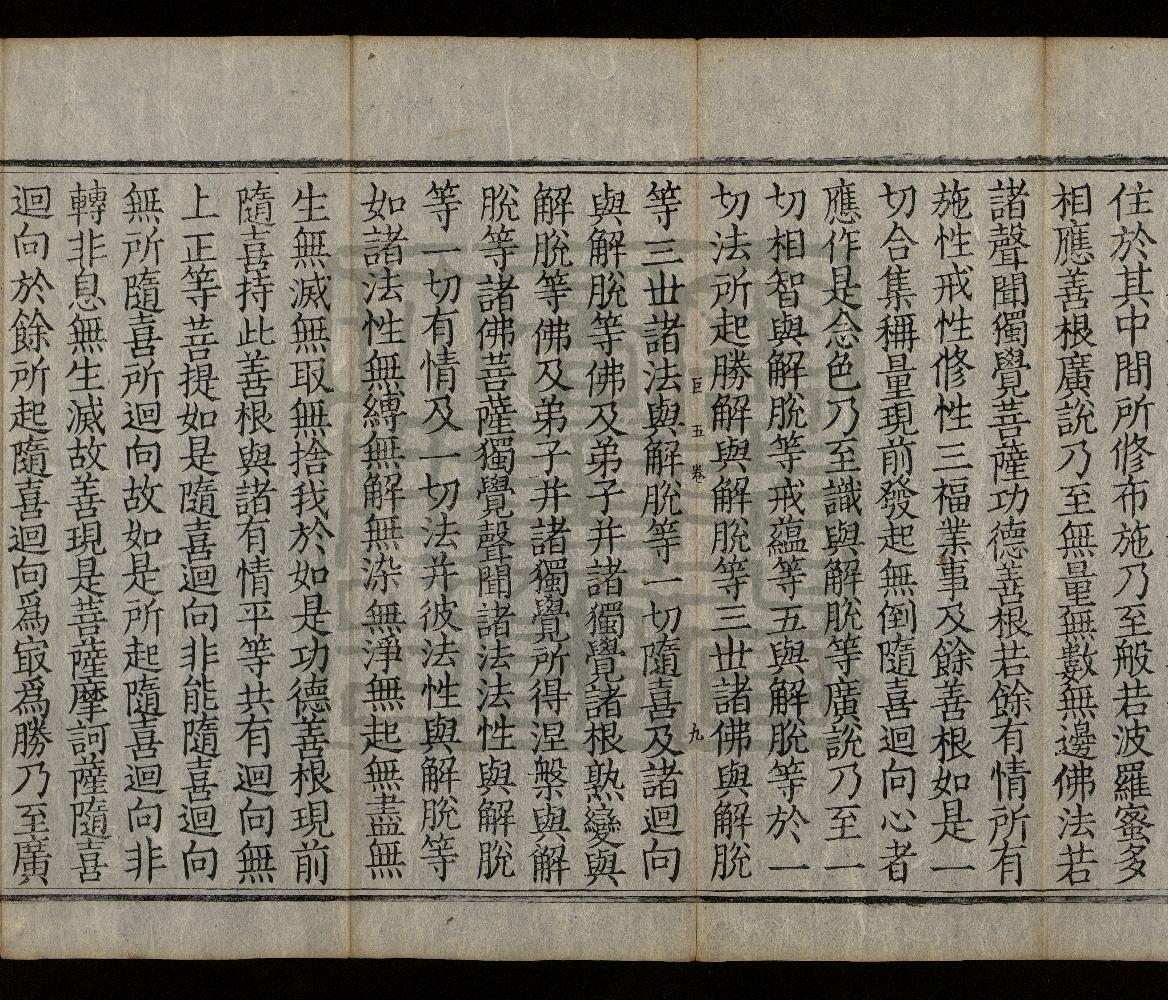 住於其中間所修布施乃至般若波羅蜜多
相應善根廣說乃至無量無數無邊佛法若
諸聲聞獨覺菩薩功德善根若餘有情所有
施性戒性修性三福業事及餘善根如是一
切合集稱量現前發起無倒隨喜迴向心者
應作是念色乃至識與解脫等廣說乃至一
切相智與解脫等戒蘊等五與解脫等於一
切法所起勝解與解脫等三世諸佛與解脫
巨 五卷 九
等三世諸法與解脫等一切隨喜及諸迴向
與解脫等佛及弟子并諸獨覺諸根熟變與
解脫等佛及弟子并諸獨覺所得涅槃與解
脫等諸佛菩薩獨覺聲聞諸法法性與解脫
等一切有情及一切法并彼法性與解脫等
如諸法性無縛無解無染無淨無起無盡無
生無滅無取無捨我於如是功德善根現前
隨喜持此善根與諸有情平等共有迴向無
上正等菩提如是隨喜迴向非能隨喜迴向
無所隨喜所迴向故如是所起隨喜迴向非
轉非息無生滅故善現是菩薩摩訶薩隨喜
迴向於餘所起隨喜迴向爲㝡爲勝乃至廣